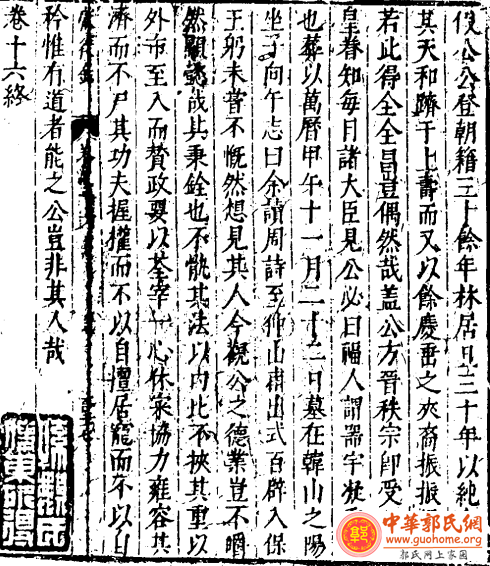 役公公登朝籍三十餘年林居又三十年以純
其天和躋于上壽而又以餘慶畱之來裔振振
若此得全全昌豈偶然哉蓋公方晉秩宗即受
皇春知每日諸大臣見公必曰福人謂器宇凝
也葬以萬曆甲午十一月二十二日墓在韓山之陽
坐子向午志曰余讀周詩至仲山甫出式百辟入保
王躬未嘗不慨然想見其人今觀公之德業豈不
然顯哉其秉銓也不骫其法以內比不挾其重以
外市至入而贊政要以荃宰一心休家協力雍容共
濟而不尸其功夫握權而不以自擅居寵而不以自
矜惟有道者能之公豈非其人哉
卷十六終
中華郭氏網
www.guohome.org
郭氏网上家園